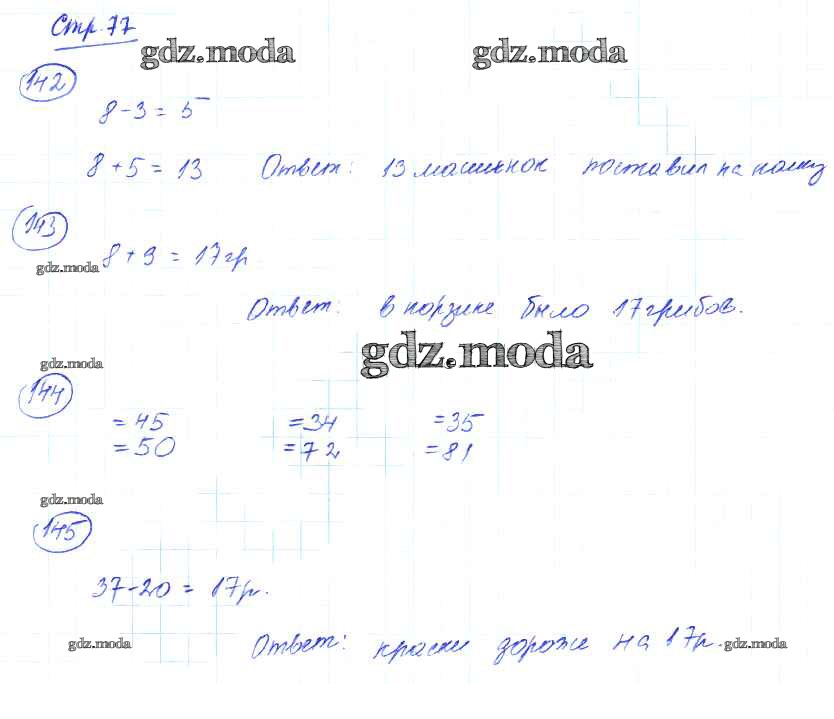 Стр. 77
gdz.moda gdz.moda
142
8 - 3 = 5
8 + 5 = 13 Ответ: 13 машинок поставил на полку
143
8 + 9 = 17 гр
gdz.moda
Ответ: в корзине было 17 грибов.
gdz.moda gdz.moda
144
= 45 = 34 = 35
= 50 = 72 = 81
gdz.moda
145
37 - 20 = 17 р.
gdz.moda Ответ: краски дороже на 17 р. gdz.moda